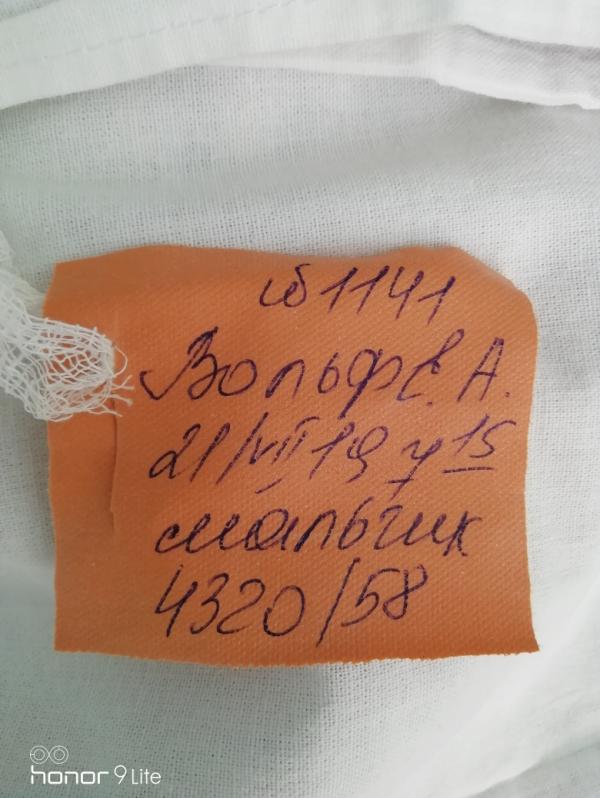 1141
Вольф Е. А.
21/VII 19 4 15
мальчик
4320/58
honor 9 Lite